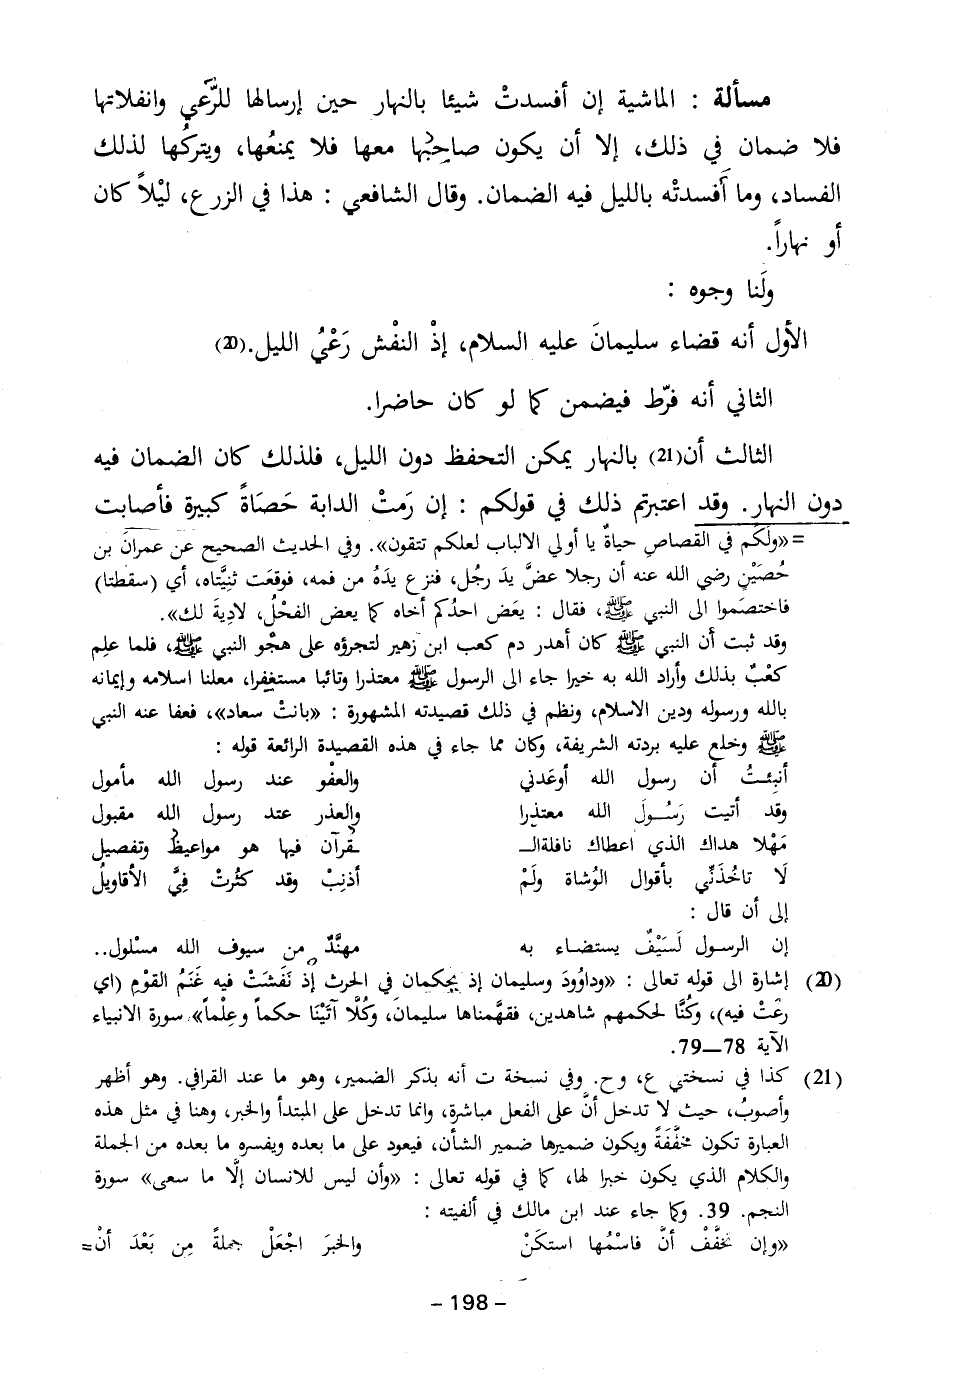 مسألة : الماشية إن أفسدتْ شيئا بالنهار حين إرسالها للرَّعي وانفلاتها
فلا ضمان في ذلك، إلا أن يكون صاحبُها معها فلا يمنعُها، ويتركُها لذلك
الفساد، وما أفسدتْه بالليل فيه الضمان. وقال الشافعي : هذا في الزرع، ليْلاً كان
أو نهاراً.
ولَنا وجوه :
الأول أنه قضاء سليمانَ عليه السلام، إذْ النفْش رَعْيُ الليل.(20)
الثاني أنه فرّط فيضمن كما لو كان حاضرا.
الثالث أن(21) بالنهار يمكن التحفظ دون الليل، فلذلك كان الضمان فيه
دون النهار. وقد اعتبرتم ذلك في قولكم : إن رَمتْ الدابة حَصَاةً كبيرة فأصابت
=«ولَكم في القصاصِ حياةٌ يا أولي الالباب لعلكم تتقون». وفي الحديث الصحيح عن عمرانَ بن
حُصَيْنٍ رضي الله عنه أن رجلا عضَّ يدَ رجُل، فنزع يدَهُ من فمه، فوقعَت ثنِيَّتاه، أي (سقطتا)
فاختصَموا الى النبي ﷺ، فقال : يعَض احدُكم أخاه كما يعض الفحْلُ، لادِيةَ لك».
وقد ثبت أن النبي ﷺ كان أهدر دم كعب ابن زهير لتجرؤه على هجْو النبي ﷺ، فلما علِم
كعْبٌ بذلك وأراد الله به خيرا جاء الى الرسول ﷺ معتذرا وتائبا مستغفِرا، معلنا اسلامه وإيمانه
بالله ورسوله ودين الاسلام، ونظم في ذلك قصيدته المشهورة : «بانتْ سعاد»، فعفا عنه النبي
ﷺ وخلع عليه بردته الشريفة، وكان مما جاء في هذه القصيدة الرائعة قوله :
أنبِئـتُ أن رسول الله أوعَدني والعفْو عند رسول الله مأمول
وقد أتيت رَسُـولَ الله معتذِرا والعذر عتد رسول الله مقبول
مَهْلا هداك الذي اعطاك نافلةالـ ـقرآن فيها هو مواعيظٌ وتفصيل
لَا تاخُذنِّي بأقوال الوُشاة ولَمْ أذنِبْ وقد كثُرتْ فِيَّ الأقاويلُ
إلى أن قال :
إن الرسول لَسَيْفٌ يستضاء به مهنَّدٌ من سيوف الله مسْلول..
(20) إشارة الى قوله تعالى : «وداوُودَ وسليمان إذ يحكمان في الحرث إذ نَفَشَتْ فيه غَنَمُ القوْمِ (اي
رعَتْ فيه)، وكُنَّا لحكمهم شاهدين، ففهَّمناها سليمانَ، وكُلَّا آتَيْنَا حكماً وعِلْماً». سورة الانبياء
الآية 78—79.
(21) كذا في نسختي ع، وح. وفي نسخة ت أنه بذكر الضمير، وهو ما عند القرافي. وهو أظهر
وأصوبُ، حيث لا تدخل أنَّ على الفعل مباشرة، وانما تدخل على المبتدأ والخبر، وهنا في مثل هذه
العبارة تكون مخفَّفَةً ويكون ضميرها ضمير الشأن، فيعود على ما بعده ويفسره ما بعده من الجملة
والكلام الذي يكون خبرا لها، كما في قوله تعالى : «وأن ليس للانسان إلَّا ما سعى» سورة
النجم. 39. وكما جاء عند ابن مالك في ألفيته :
«وإن تخفَّفْ أنَّ فاسْمُها استكَنْ والخبرَ اجْعَلْ جملةً مِن بَعْدَ أنْ=
- 198 -